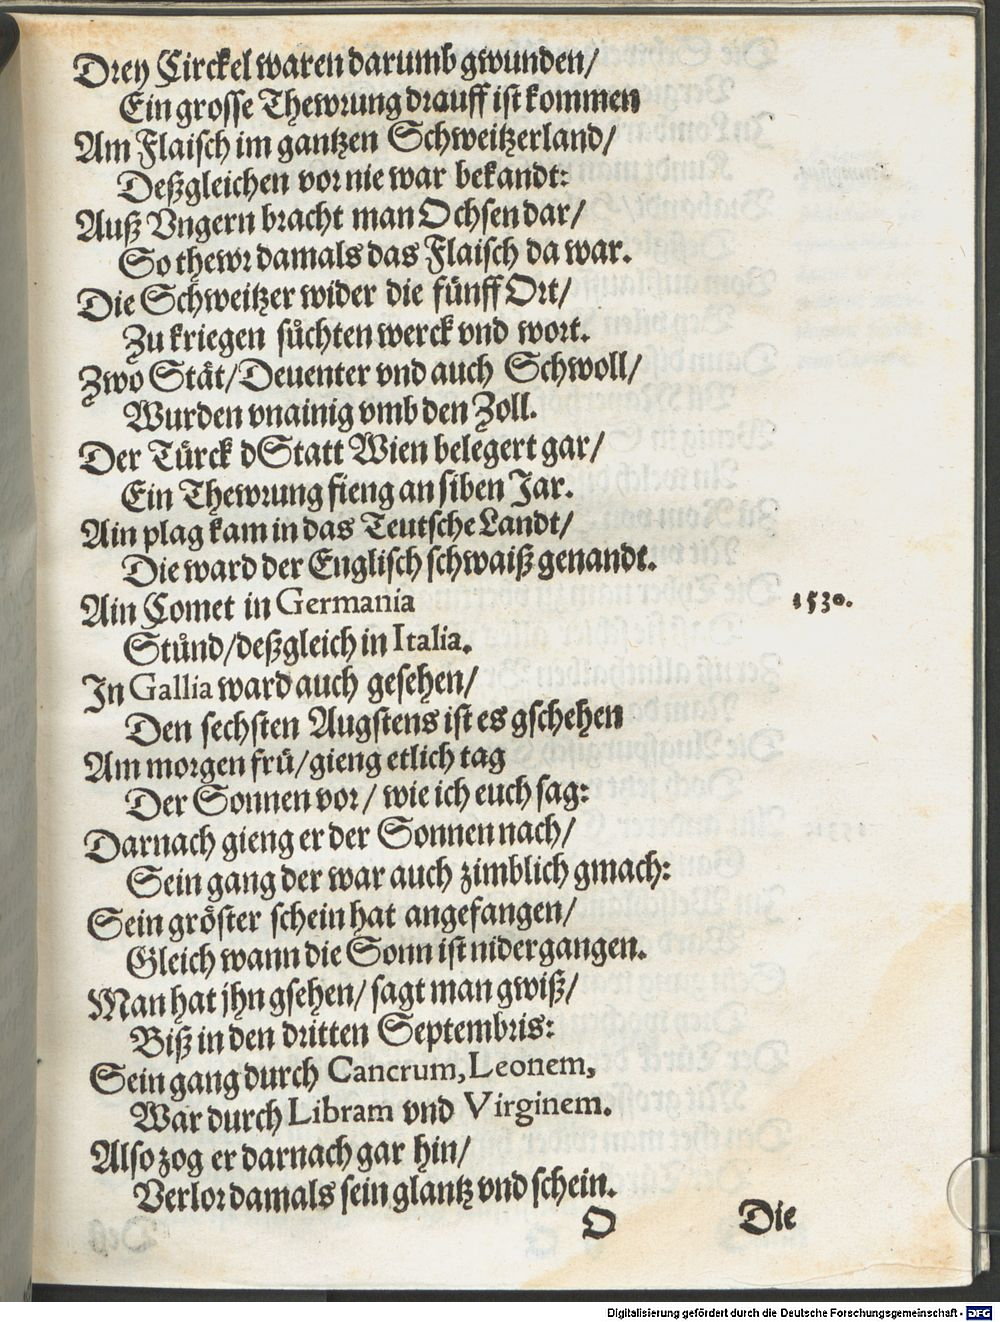 Drey Circkel waren darumb gwunden/
Ein grosse Thewrung drauff ist kommen
Am Flaisch im gantzen Schweitzerland/
Deßgleichen vor nie war bekandt:
Auß Vngern bracht man Ochsen dar/
So thewr damals das Flaisch da war.
Die Schweitzer wider die fünff Ort/
Zu kriegen sůchten werck vnd wort.
Zwo Stät/Deuenter vnd auch Schwoll/
Wurden vnainig vmb den Zoll.
Der Türck dStatt Wien belegert gar/
Ein Thewrung fieng an siben Jar.
Ain plag kam in das Teutsche Landt/
Die ward der Englisch schwaiß genandt.
Ain Comet in Germania
1530.
Stůnd/deßgleich in Italia.
In Gallia ward auch gesehen/
Den sechsten Augstens ist es gschehen
Am morgen frü/gieng etlich tag
Der Sonnen vor/ wie ich euch sag:
Darnach gieng er der Sonnen nach/
Sein gang der war auch zimblich gmach:
Sein gröster schein hat angefangen/
Gleich wann die Sonn ist nidergangen.
Man hat jhn gsehen/ sagt man gwiß/
Biß in den dritten Septembris:
Sein gang durch Cancrum, Leonem,
War durch Libram vnd Virginem.
Also zog er darnach gar hin/
Verlor damals sein glantz vnd schein.
O Die
Digitalisierung gefördert durch die Deutsche Forschungsgemeinschaft - DFG